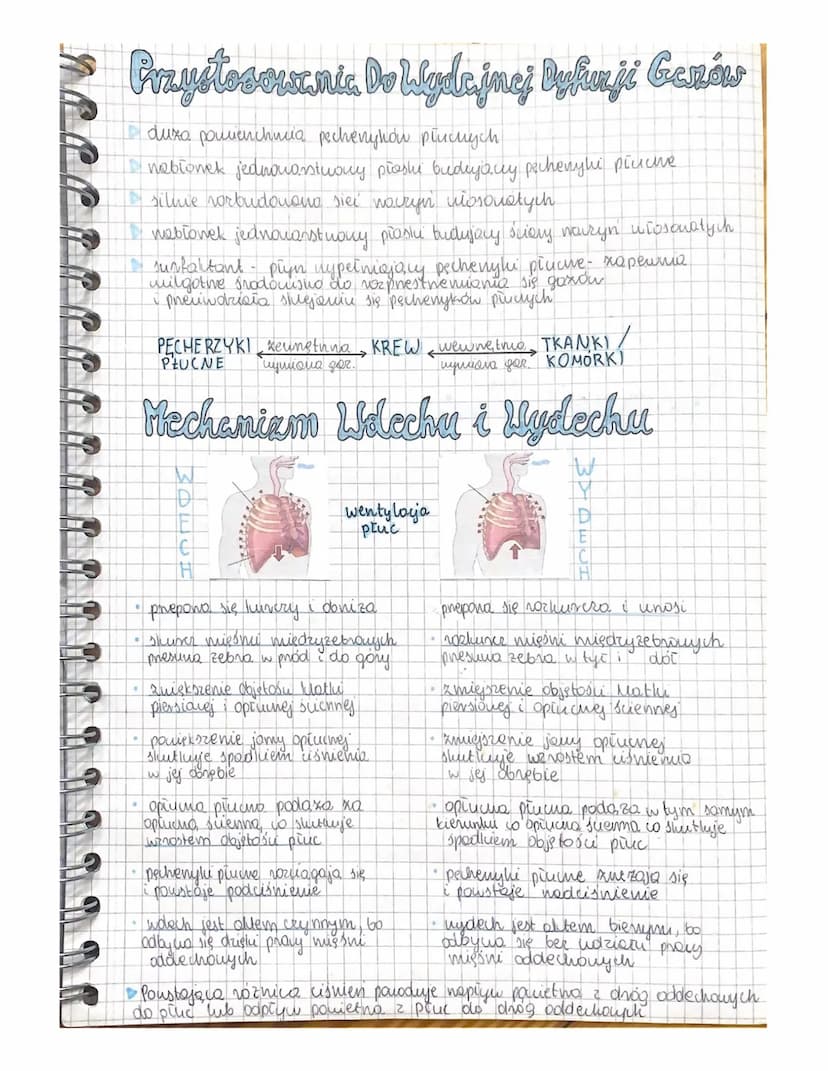 Przystosowania Do Wydajnej Dyfuzji Gazów
duża powierzchnia pęcherzyków płucnych
nabłonek jednowarstwowy płaski budujący pęcherzyki płucne
silnie rozbudowana sieć naczyń włosowatych
nabłonek jednowarstwowy płaski budujący ściany naczyń włosowatych
surfaktant - płyn wypełniający pęcherzyki płucne - zapewnia
wilgotne środowisko do rozprzestrzeniania się gazów
i przeciwdziała sklejaniu się pęcherzyków płucnych
PĘCHERZYKI PŁUCNE zewnętrzna wymiana gaz. KREW wewnętrzna wymiana gaz. TKANKI / KOMÓRKI
Mechanizm Wdechu i Wydechu
WDECH
wentylacja
płuc
WYDECH
• przepona się kurczy i obniża
• skurcz mięśni międzyżebrowych
przesuwa żebra w przód i do góry
• zwiększenie objętości klatki
piersiowej i opłucnej ściennej
• powiększenie jamy opłucnej
skutkuje spadkiem ciśnienia
w jej obrębie
• opłucna płucna podąża za
opłucną ścienną, co skutkuje
wzrostem objętości płuc
• pęcherzyki płucne rozciągają się
i powstaje podciśnienie
• wdech jest aktem czynnym, bo
odbywa się dzięki pracy mięśni
oddechowych
przepona się rozkurcza i unosi
• rozkurcz mięśni międzyżebrowych
przesuwa żebra w tył i dół
• zmiejszenie objętości klatki
piersiowej i opłucnej ściennej
• zmiejszenie jamy opłucnej
skutkuje wzrostem ciśnienia
w jej obrębie
• opłucna płucna podąża w tym samym
kierunku co opłucna ścienna co skutkuje
spadkiem objętości płuc
• pęcherzyki płucne zwężają się
i powstaje nadciśnienie
• wydech jest aktem biernym, bo
odbywa się bez udziału pracy
mięśni oddechowych
Powstająca różnica ciśnień powoduje napływ powietrza z dróg oddechowych
do płuc lub odpływ powietrza z płuc do dróg oddechowych